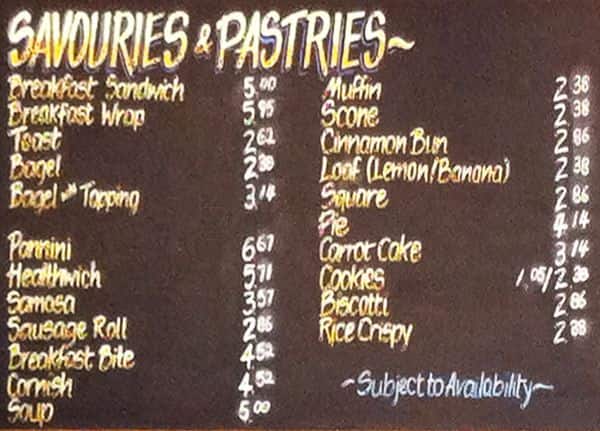 SAVOURIES & PASTRIES~
Breakfast Sandwich 5.00
Breakfast Wrap 5.95
Toast 2.62
Bagel 2.38
Bagel with Topping 3.14
Pannini 6.67
Healthwich 5.71
Samosa 3.57
Sausage Roll 2.86
Breakfast Bite 4.52
Cornish 4.52
Soup 5.00
Muffin 2.38
Scone 2.38
Cinnamon Bun 2.86
Loaf (Lemon/Banana) 2.38
Square 2.86
Pie 4.14
Carrot Cake 3.14
Cookies 1.05/2.38
Biscotti 2.86
Rice Crispy 2.38
~Subject to Availability~